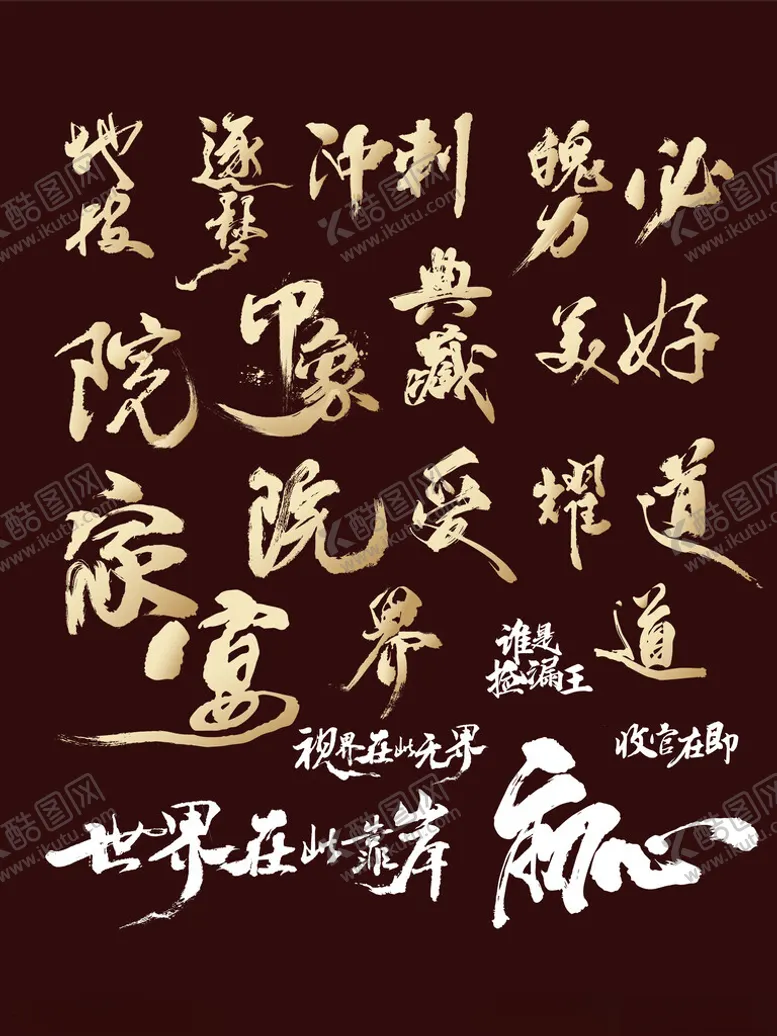 地铁
逐梦
冲刺
魄力
必
院
印象
典藏
美好
家
院
受
耀
道
宴
界
谁是
捡漏王
道
视界在此无界
收官在即
世界在此靠岸
初心
酷图网
www.ikutu.com